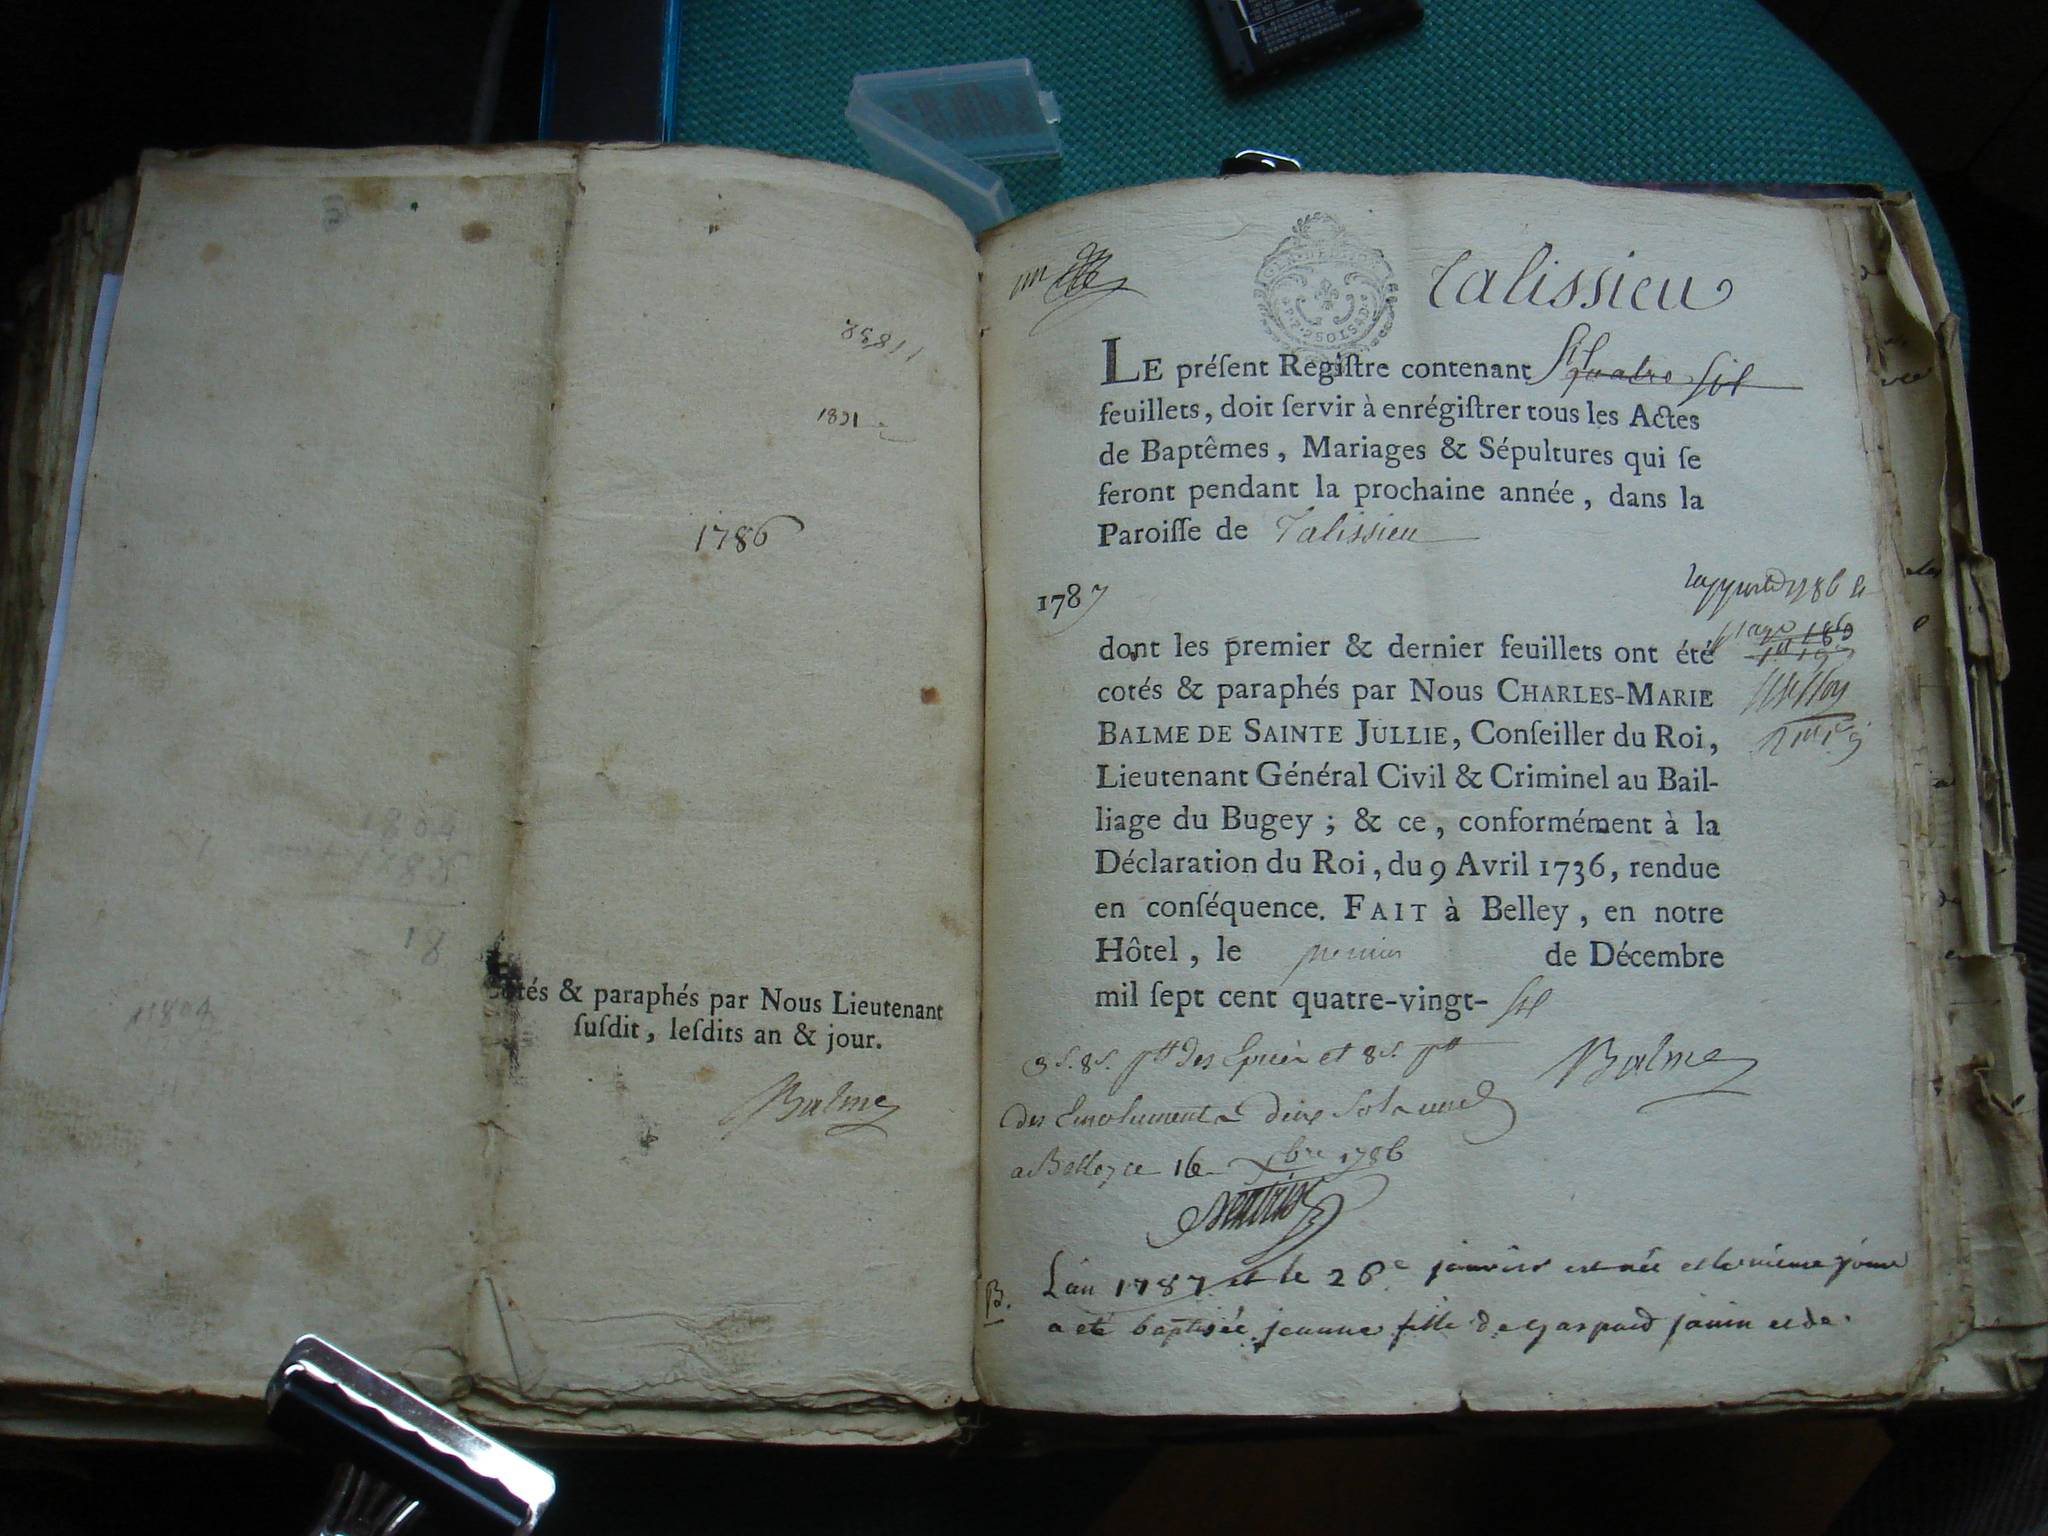 1821
1786
tés & paraphés par Nous Lieutenant
ſuſdit, leſdits an & jour.
Balme
un
Talissieu
GEN. DE DIJON
LE préſent Regiſtre contenant quatre six
feuillets, doit ſervir à enrégiſtrer tous les Actes
de Baptêmes, Mariages & Sépultures qui ſe
feront pendant la prochaine année, dans la
Paroiſſe de Talissieu
1787
dont les premier & dernier feuillets ont été
cotés & paraphés par Nous CHARLES-MARIE
BALME DE SAINTE JULLIE, Conſeiller du Roi,
Lieutenant Général Civil & Criminel au Bail-
liage du Bugey ; & ce, conformément à la
Déclaration du Roi, du 9 Avril 1736, rendue
en conſéquence. FAIT à Belley, en notre
Hôtel, le premier de Décembre
mil ſept cent quatre-vingt- six
Balme
3 s. 8 d. pr des Epices et 8 s. pr
des Emolument deux sols
a Belley ce 16 Xbre 1786
B.
L'an 1787 et le 26e janvier est née et le même jour
a eté baptisée jeanne fille de gaspard janin et de